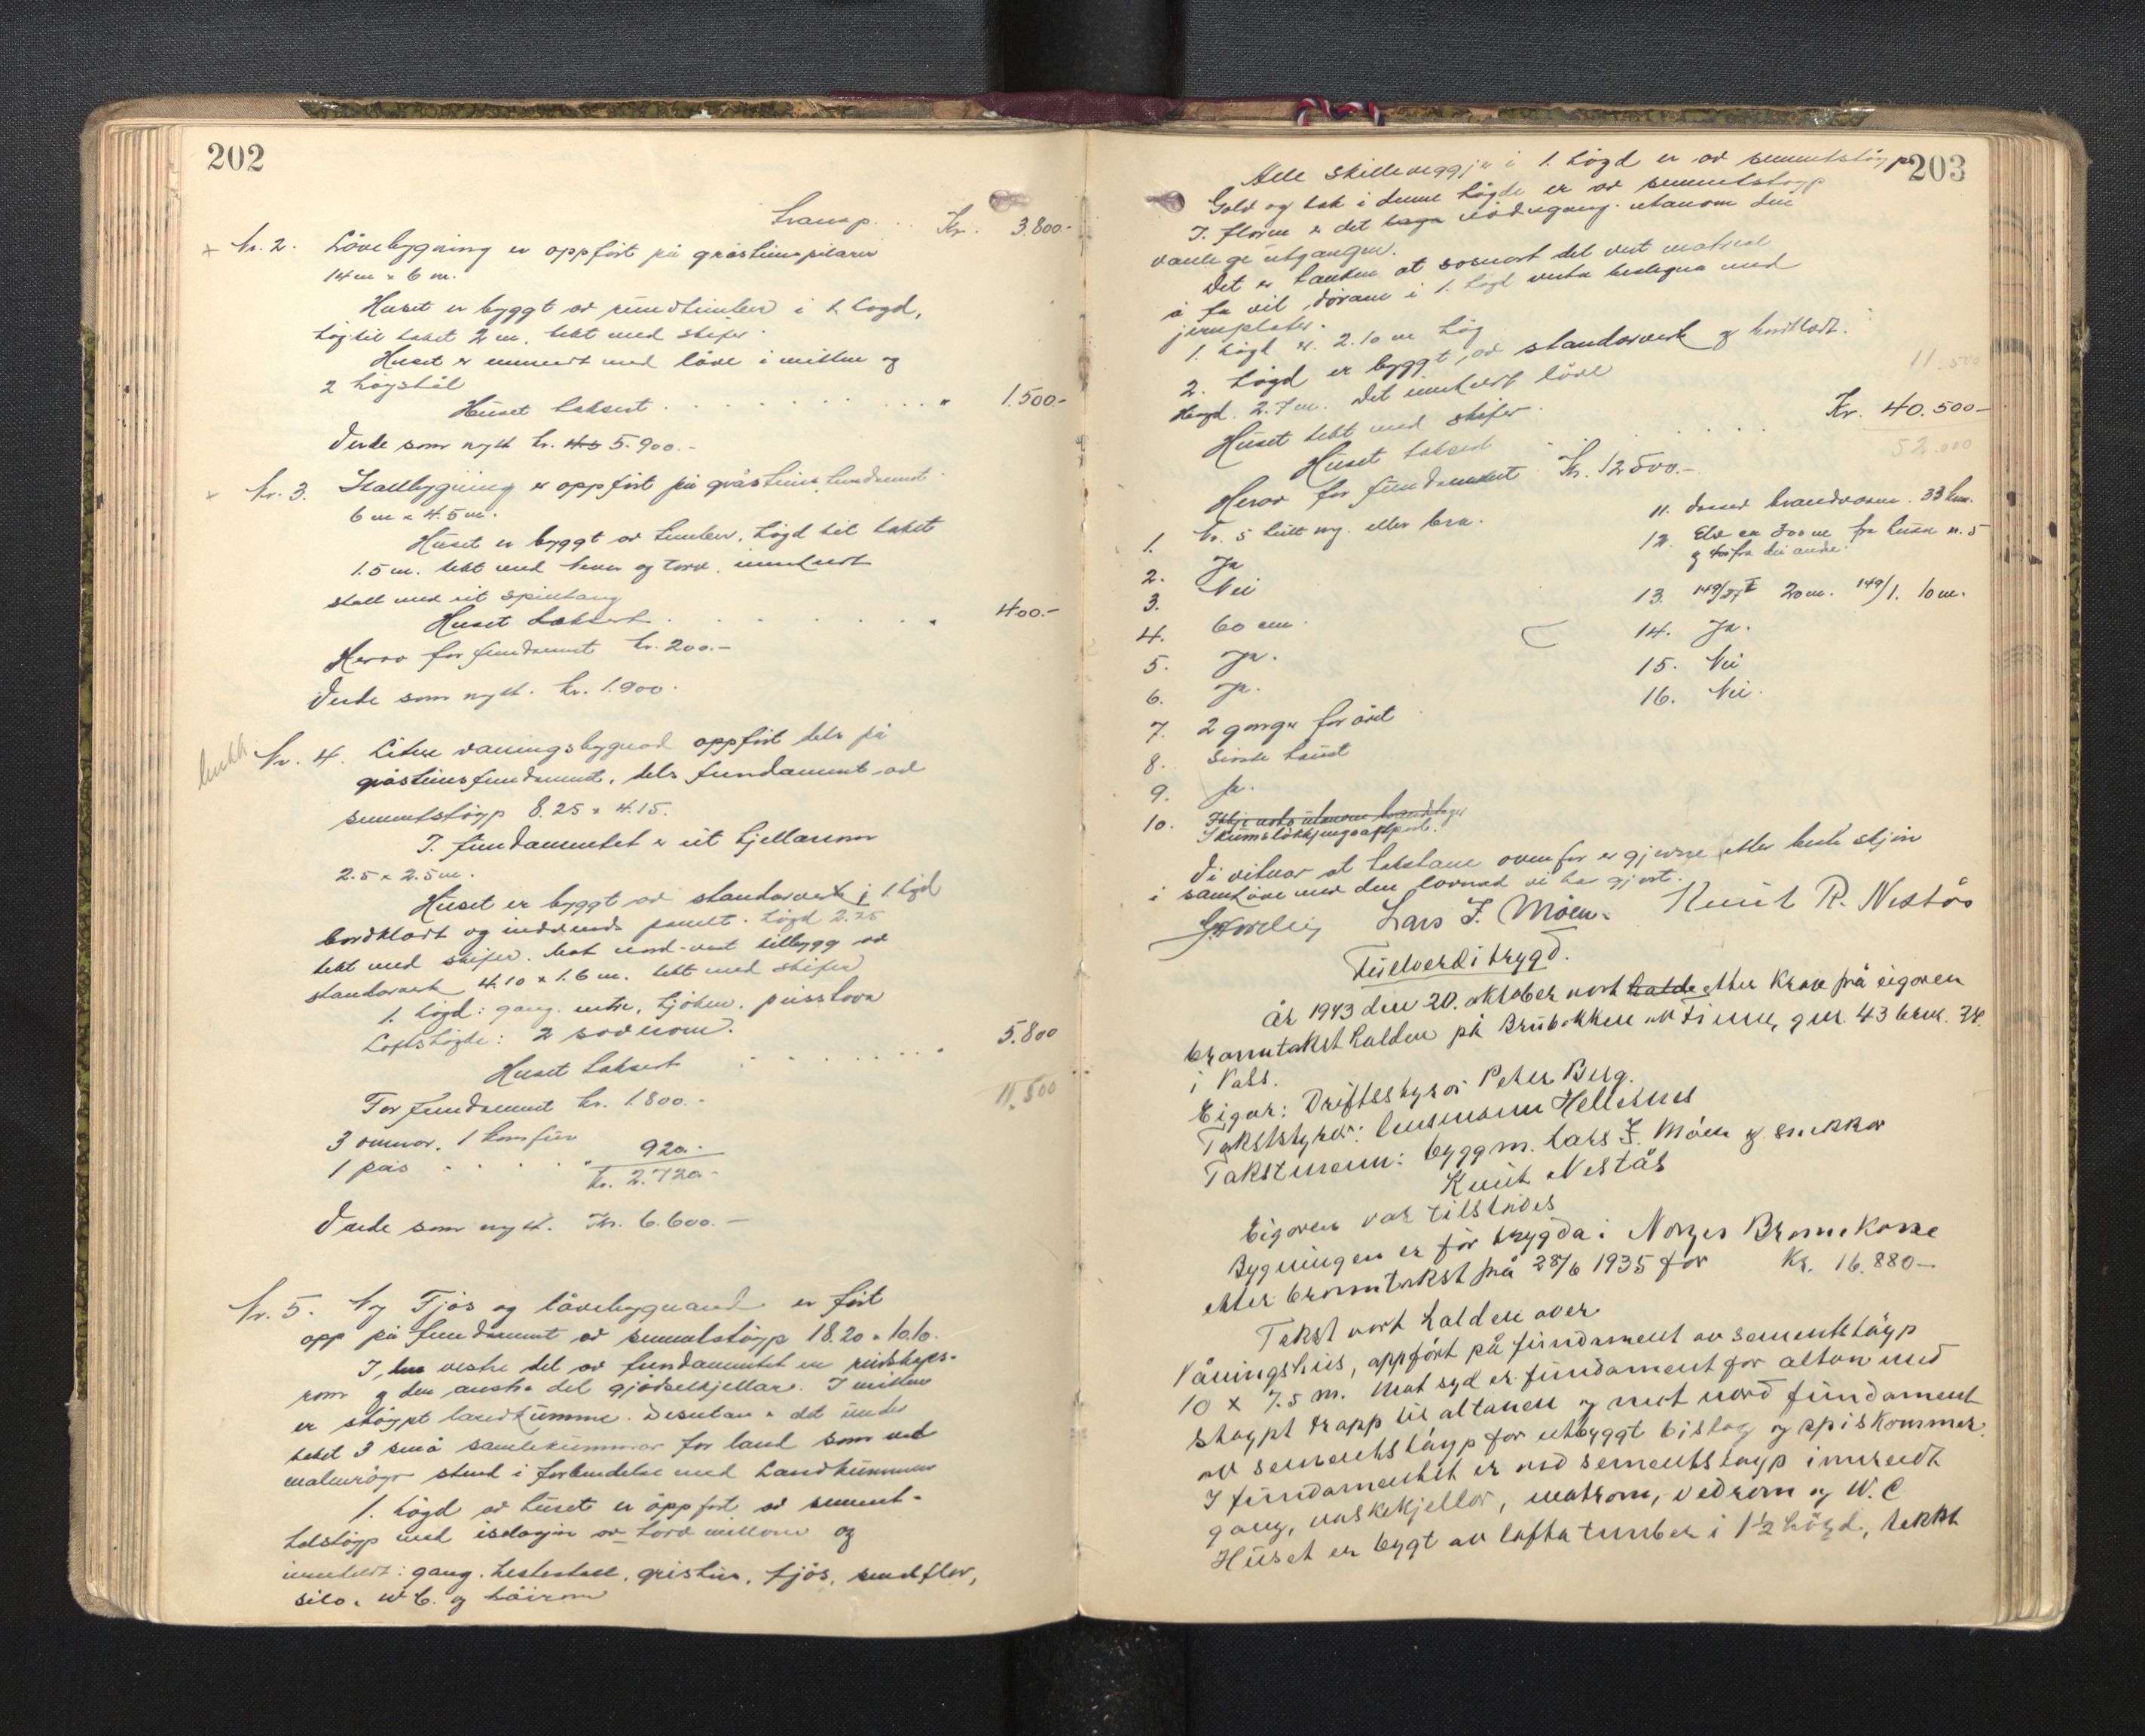 202
Transp. . . Kr. 3.800.-
+ Nr. 2. Lövebygning er oppfört på gråsteinspilarer
14 m x 6 m.
Huset er byggt av rundtimber i 1. högd,
høg til taket 2 m. tekt med skifer.
Huset er innreidt med löve i midten og
2 högstål
Huset taksert . . . . . . . . . " 1.500-
Verde som nytt kr. 5.900.-
+ Nr. 3. Stallbygning er oppfört på gråsteinsfundament
6 m x 4.5 m.
Huset er byggt av timber, högd til taket
1.5 m. tekt med never og torv, innreidt
stall med eit spiltaug
Huset taksert . . . . . . . " 400.-
Herav for fundament kr. 200.-
Verde som nytt. kr. 1.900.
Nr. 4. Liten våningsbygnad oppfört dels på
gråsteinsfundament, dels fundament av
sementstöyp 8.25 x 4.15.
I fundamentet er eit kjellarrom
2.5 x 2.5 m.
Huset er byggt av standarverk i 1. högd
bordklædt og innvendes panelt. högd 2.25
tekt med skifer. Mot nord-vest tilbygg av
standarverk 4.10 x 1.6 m. tekt med skifer
1. högd: gang. entre, kjöken. peisstova
Loftshögde: 2 soverom.
Huset taksert . . . . . . . . 5.800
11.500
For fundament kr. 1.800.-
3 omnar. 1 komfur
1 peis . . . . . " 920.-
kr. 2.720.-
Verde som nytt. Kr. 6.600.-
Nr. 5. Ny Fjös og lövebygnad er fört
opp på fundament av sementstöyp 18.20 x 10.10.
I vestre del av fundamentet er reidskaps-
rom og den austre del gjödselkjellar. I midten
er stöypt landkumme. Desutan er det under
taket 3 små samlekummar for land som ved
malmröyr stend i forbindelse med landkummen
1. högd av huset er oppfört av sement-
holstöyp med isolasjon av torv millom og
innreidt: gang. hestestall, grishus, fjös, sauaflor,
silo. W C. og höirom
203
Alle skilleveggjer i 1. högd er av sementstöyp
Golv og tak i denne högde er av sementstöyp
I floren er det naudutgang utanom den
vanlege utgangen.
Det er tanken at sosnart det vert materiell
å få vil dörane i 1. högd verta beslegne med
jernplater.
1. högd er 2.10 m hög
2. högd er byggt av standarverk og bordklædt.
Högd 2.7 m. Det innreidt löve
11.500
Huset tekt med skifer.
Huset taksert . . . . . . Kr. 40.500-
52.000
Herav for fundament Kr. 12500.-
1. Nr. 5 heilt ny. eller bra.
2. Ja
3. Nei
4. 60 cm.
5. Ja.
6. Ja.
7. 2 gonger for året
8. Siste haust
9. Ja.
10. Skumslökkjingsapparat.
11. Vossed brandvæsen. 33 km.
12. Elv ca 300 m fra husa nr. 5
13. 20 m. 149/1. 10 m.
14. Ja.
15. Nei
16. Nei.
Vi vitnar at takstane ovenfor er gjevne etter beste skjön
i samhöve med den lovnad vi har gjort.
Lars J. Möen. Knut R. Nestås
Fullverditrygd.
År 1943 den 20. oktober vart halde etter krav frå eigaren
branntakst halden på Brubakken av Finne, gnr. 43 brnr. 34.
i Voss.
Eigar: Driftsstyrar Peter Berg.
Takststyrar: lensmann Hellesnes
Takstmenn: byggm. Lars J. Möen og snekkar
Knut Nestås
Eigaren var tilstades
Bygningen er för trygda i Norges Brannekasse
etter branntakst frå 28/6 1935 for Kr. 16.880-
Takst vart halden over
Våningshus, oppfört på fundament av sementstöyp
10 x 7.5 m. Mot syd er fundament for altan med
stöypt trapp til altanen og mot nord fundament
av sementstöyp for utbyggt bislag og spiskammer.
I fundamentet er ved sementstöyp innreidt
gang, vaskekjellar, matrom, vedrom og W. C.
Huset er bygt av lafta tumber i 1½ högd, tekkt